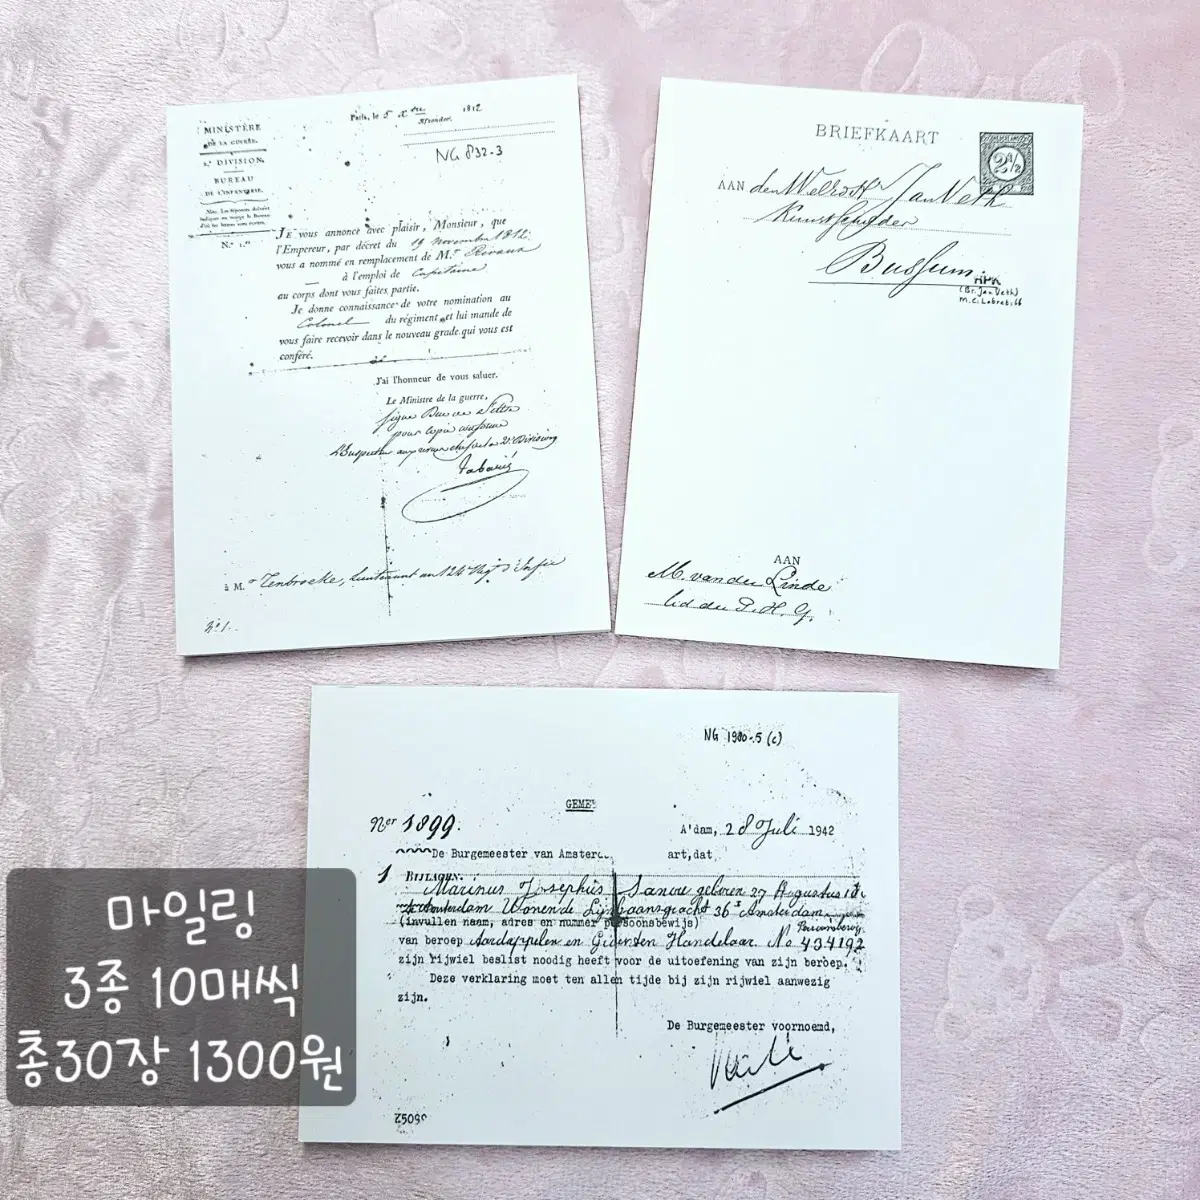 MINISTÈRE
DE LA GUERRE.
2.e DIVISION.
BUREAU
DE L'INFANTERIE.
N.o 1.er
Paris, le 5 Xbre 1812
NG 832-3
JE vous annonce avec plaisir, Monsieur, que
l'Empereur, par décret du 19 novembre 1812
vous a nommé en remplacement de M.r
à l'emploi de Capitaine
au corps dont vous faites partie.
Je donne connaissance de votre nomination au
Colonel du régiment et lui mande de
vous faire recevoir dans le nouveau grade qui vous est
conféré.
J'ai l'honneur de vous saluer.
Le Ministre de la guerre,
signé Duc de Feltre
pour copie conforme
à M.r Tenbroeke, lieutenant au 126 Reg.t d'Inf.ie
BRIEFKAART
2½
AAN den Jan Veth
Kunstschilder
Bussum
RPK
(Br. Jan Veth)
AAN
M. van der Linde
lid der P. H. G.
NG 1980-5 (c)
GEME
Ner 1899.
A'dam, 28 Juli 1942
De Burgemeester van Amster art,dat
1 BIJLAGEN.
Marinus Josephus geboren 27 Augustus
Amsterdam Wonende Lijnbaansgracht 36 I Amsterdam
(invullen naam, adres en nummer persoonsbewijs) Persoonsbewijs
van beroep Aardappelen en Groenten Handelaar. No 434192
zijn rijwiel beslist noodig heeft voor de uitoefening van zijn beroep.
Deze verklaring moet ten allen tijde bij zijn rijwiel aanwezig
zijn.
De Burgemeester voornoemd,
마일링
3종 10매씩
총30장 1300원